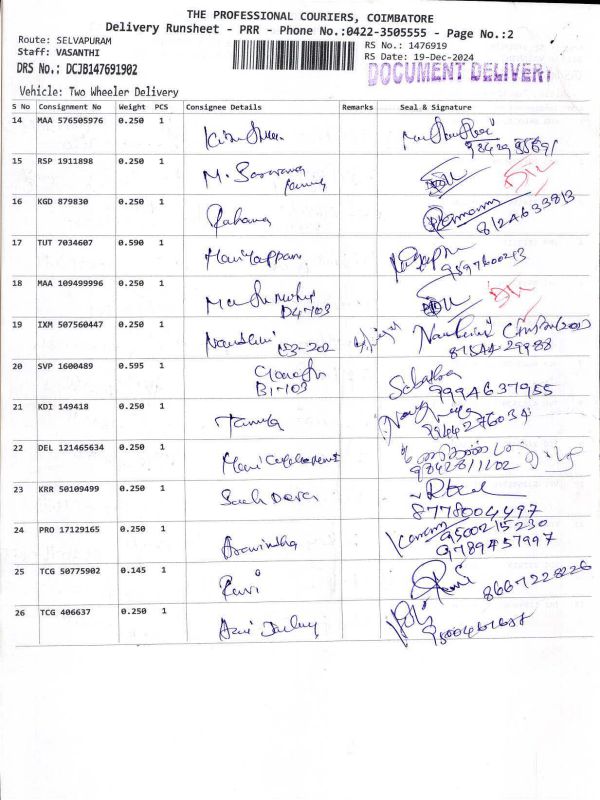 THE PROFESSIONAL COURIERS, COIMBATORE
Delivery Runsheet - PRR - Phone No.:0422-3505555 - Page No.:2
Route: SELVAPURAM
Staff: VASANTHI
DRS No.: DCJB147691902
RS No.: 1476919
RS Date: 19-Dec-2024
DOCUMENT DELIVERY
Vehicle: Two Wheeler Delivery
S No Consignment No Weight PCS Consignee Details Remarks Seal & Signature
14 MAA 576505976 0.250 1
15 RSP 1911898 0.250 1 M.
16 KGD 879830 0.250 1 8124633813
17 TUT 7034607 0.590 1 Mariyappan
18 MAA 109499996 0.250 1 D4-103
19 IXM 507560447 0.250 1 Nandhini 87544 29988
20 SVP 1600489 0.595 1 Ganesh 9994637955
B1-103
21 KDI 149418 0.250 1
22 DEL 121465634 0.250 1 9842811102
23 KRR 50109499 0.250 1 8778004497
24 PRO 17129165 0.250 1 Aravindha 9500215230
9789457997
25 TCG 50775902 0.145 1 Ravi 8667228226
26 TCG 406637 0.250 1